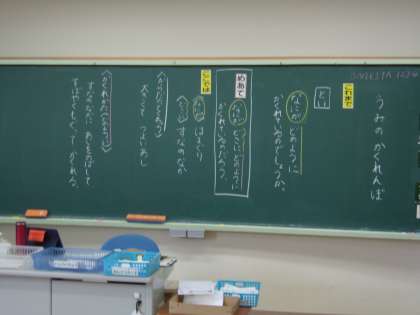 うみの かくれんぼ
これまで
とい
なにが どのように
かくれているのでしょうか。
めあて
なにが どこに どのように
かくれているのだろう。
なにが はまぐり
どこ すなのなか
大きくて つよいあし
すなのなかに あしをのばして
すばやくもぐって かくれる。